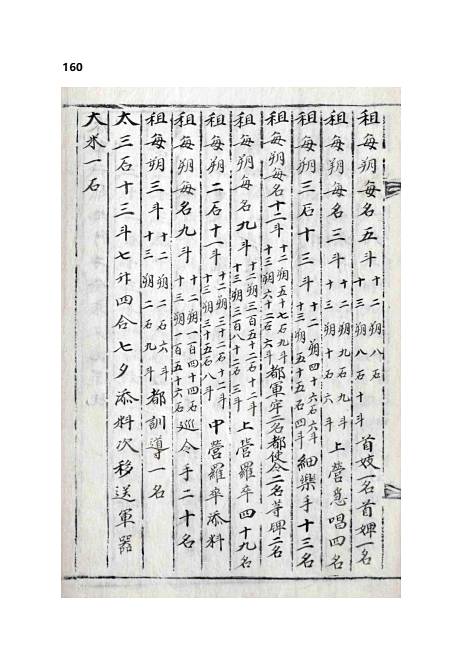 160
租每朔每名五斗十二朔八石十三朔八石十斗首妓一名首婢一名
租每朔每名三斗十二朔九石九斗十三朔十石六斗上營惠唱四名
租每朔三石十三斗十二朔四十六石六斗十三朔五十五石四斗細樂手十三名
租每朔每名十二斗十二朔五十七石九斗十三朔六十二石六斗都軍牢二名都使令二名等婢二名
租每朔每名九斗十二朔三百五十二石十二斗十三朔三百八十二石三斗上營羅卒四十九名
租每朔二石十一斗十二朔三十二石十二斗十三朔三十五石八斗中營羅卒添料
租每朔每名九斗十二朔一百四十四石十三朔一百五十六石巡令手二十名
租每朔三斗十二朔二石六斗十三朔二石九斗都訓導一名
太三石十三斗七升四合七夕添料次移送軍器
大米一石